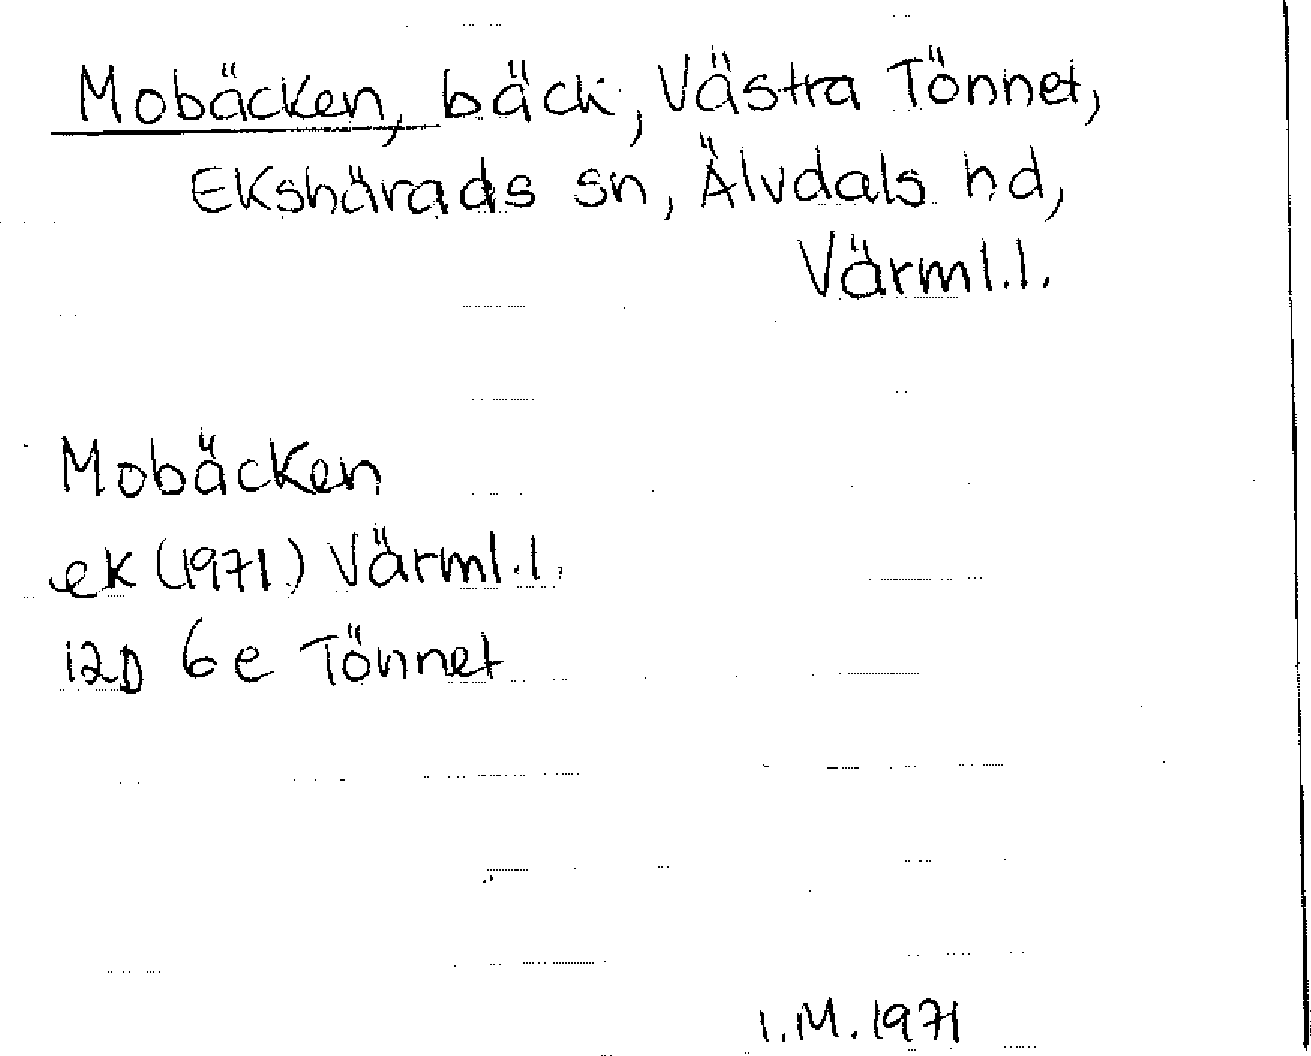 Mobäcken, bäck, Västra Tönnet,
Ekshärads sn, Älvdals hd,
Värml.l.
Mobäcken
ek (1971) Värml.l.
12D 6e Tönnet
I.M. 1971